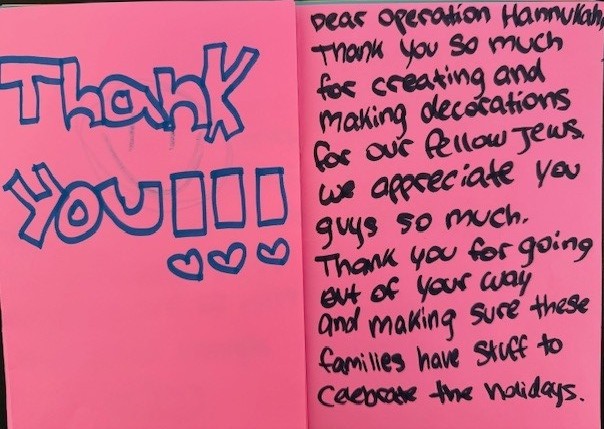 Thank
You!!!
Dear Operation Hannukah,
Thank you so much
for creating and
making decorations
for our fellow Jews.
we appreciate you
guys so much.
Thank you for going
out of your way
and making sure these
families have stuff to
Celebrate the holidays.